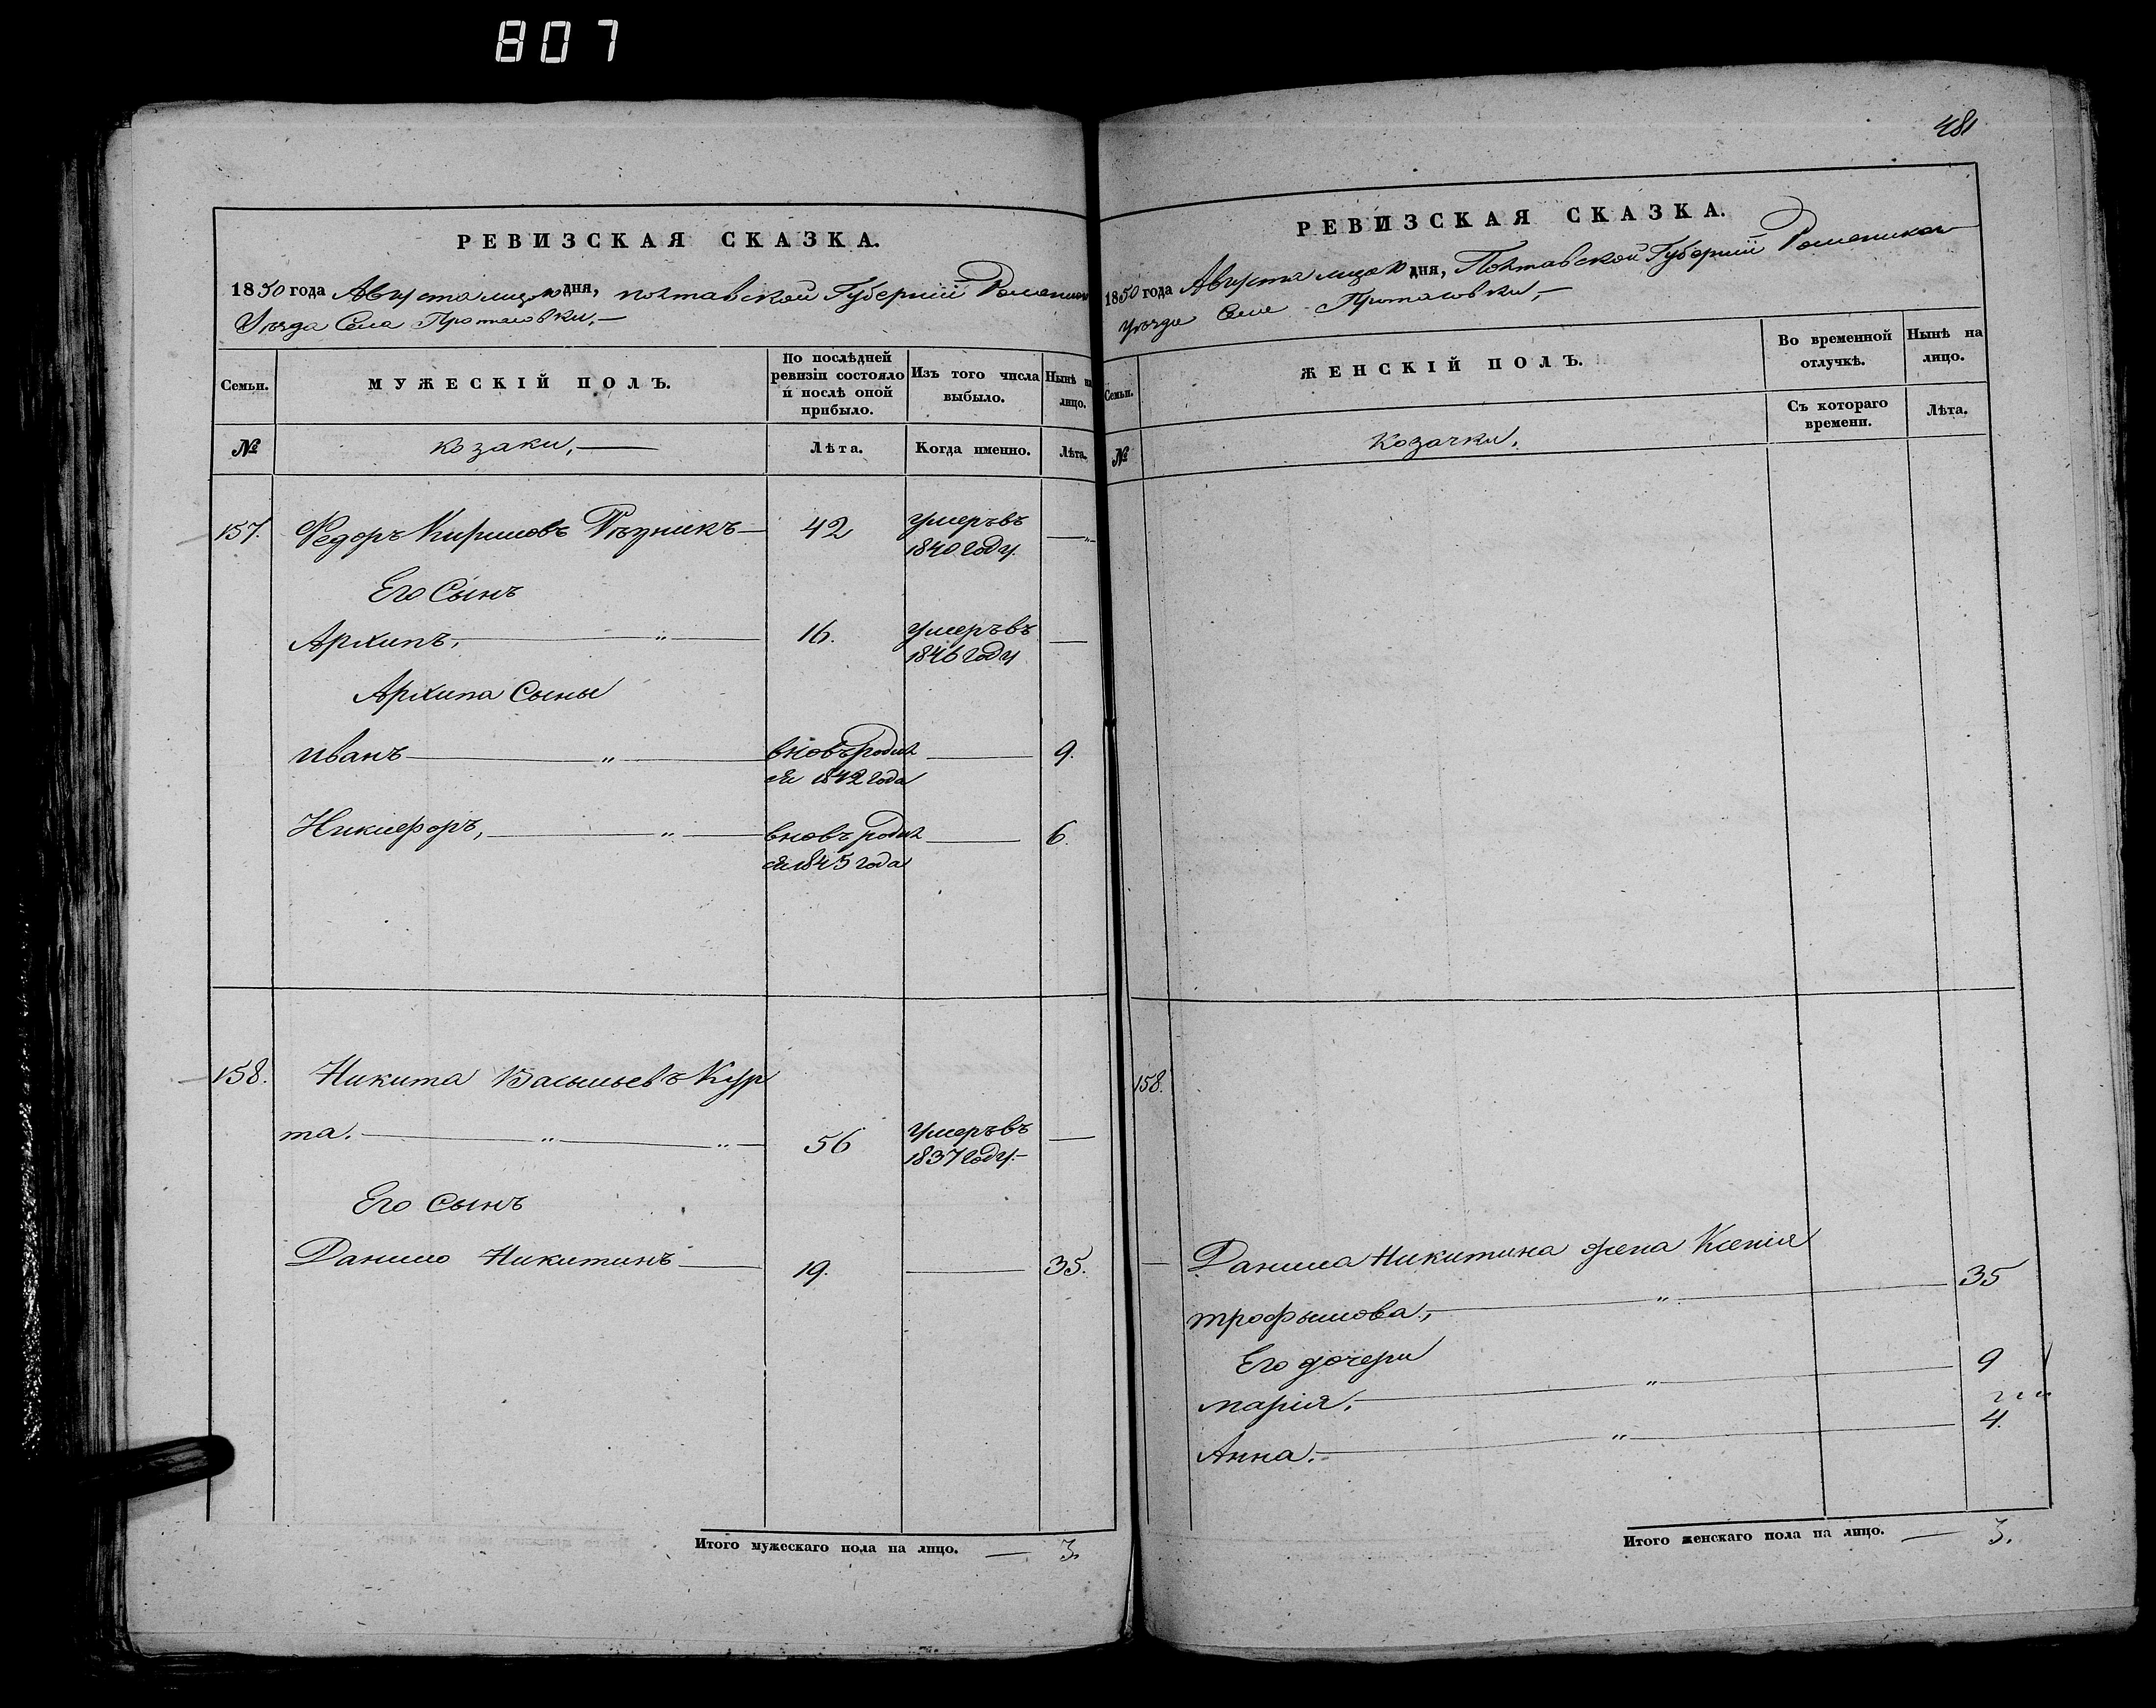 807
РЕВИЗСКАЯ СКАЗКА.
1850 года Августа дня, полтавской Губернии
Уезда Села Протасовки,
Семьи.
МУЖЕСКІЙ ПОЛЪ.
По послѣдней ревизіи состояло и послѣ оной прибыло.
Изъ того числа выбыло.
Нынѣ на лицо.
№
козаки,
Лѣта.
Когда именно.
Лѣта.
157. Федоръ Кириловъ Рѣзникъ 42 умеръ въ 1840 году
Его Сынъ
Архипъ, 16. умеръ въ 1846 году
Архипа Сыны
Иванъ вновь родил ся 1842 года 9.
Никифоръ, вновь родил ся 1845 года 6.
158. Никита Васильевъ Кур
та. 56 умеръ въ 1837 году
Его Сынъ
Данило Никитинъ 19. 35.
Итого мужескаго пола на лицо. 3.
481
РЕВИЗСКАЯ СКАЗКА.
1850 года Августа дня, Полтавской Губернии
уезда Села Протасовки,
Семьи.
ЖЕНСКІЙ ПОЛЪ.
Во временной отлучкѣ.
Нынѣ на лицо.
Съ котораго времени.
Лѣта.
№
Козачки,
158.
Данила Никитина жена Ксенія
трофымова, 35
Его дочери
марія, 9
Анна. 4.
Итого женскаго пола на лицо. 3.